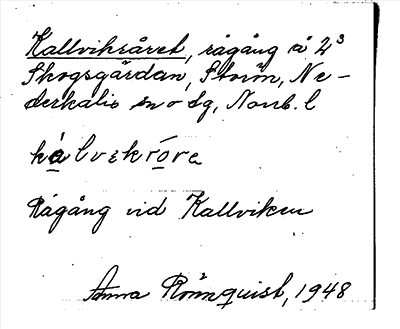 Kallvikråret, rågång å 2³
Skogsgärdan, Storön, Ne-
derkalix sn o Sg, Norrb. l
kalvekrore
Rågång vid Kallviken
Anna Rönnquist, 1948